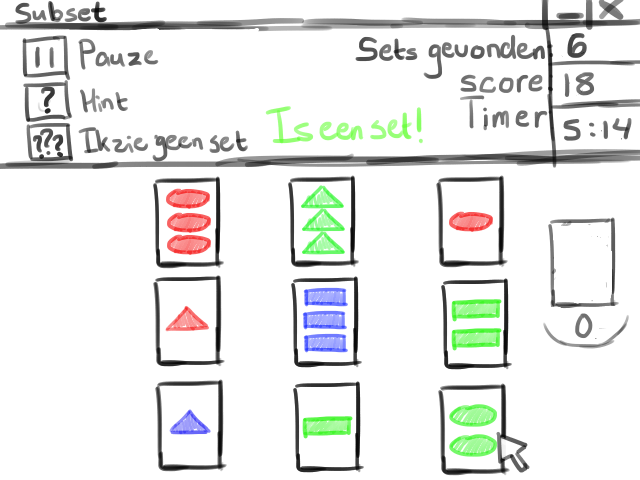 Subset
Pauze
? Hint
??? Ik zie geen set
Is een set!
Sets gevonden: 6
score 18
Timer 5:14
0